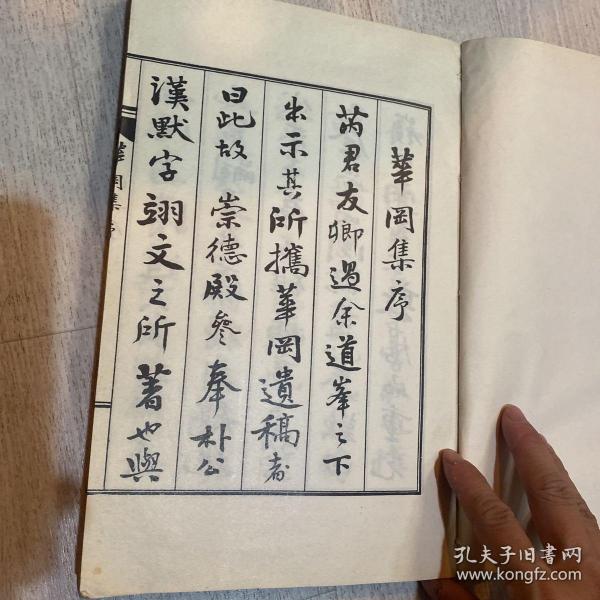 華岡集序
芮君友卿過余道峯之下
出示其所攜華岡遺稿者
曰此故崇德殿參奉朴公
漢默字翊文之所著也與
華岡集序
孔夫子旧书网
www.kongfz.com